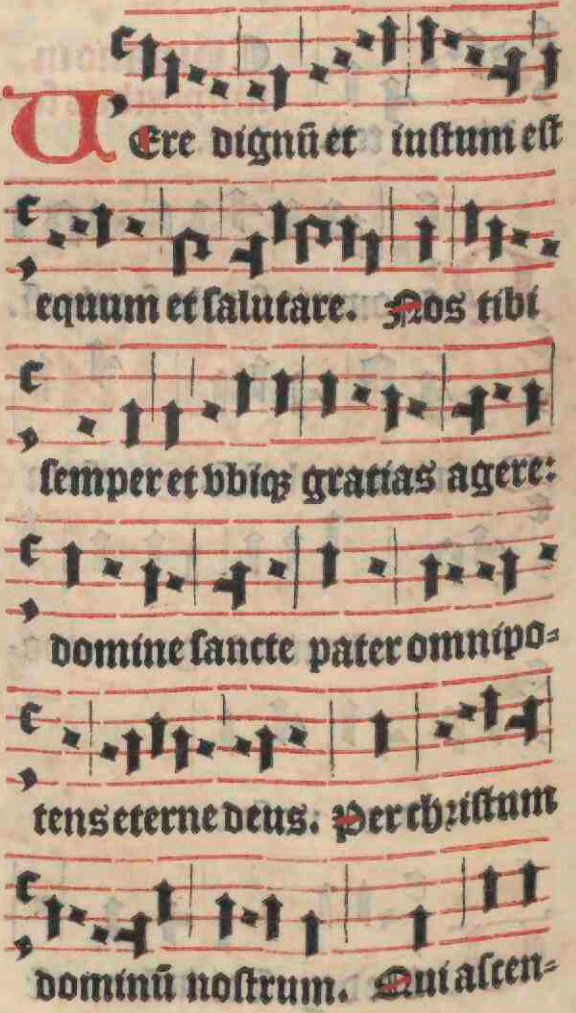 Uere dignū et iustum est
equum et salutare. Nos tibi
semper et vbiqꝫ gratias agere:
domine sancte pater omnipo-
tens eterne deus. Per christum
dominū nostrum. Qui ascen-